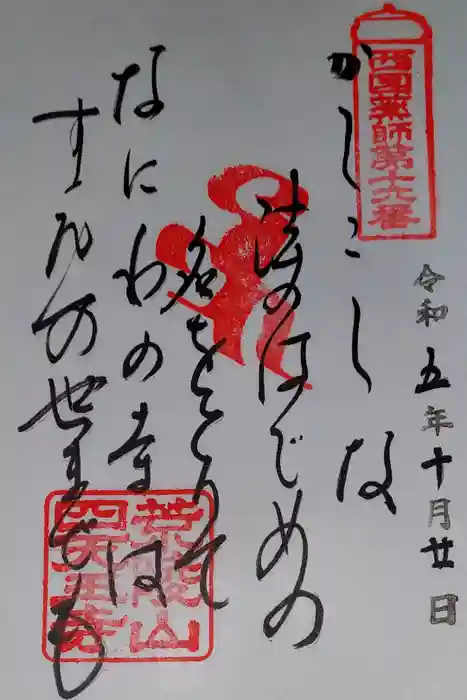 西国薬師第十六番
令和五年十月廿日
かしこしな
法のはじめの
名をとめて
なにわの寺は
すえの世までも
荒陵山
四天王寺